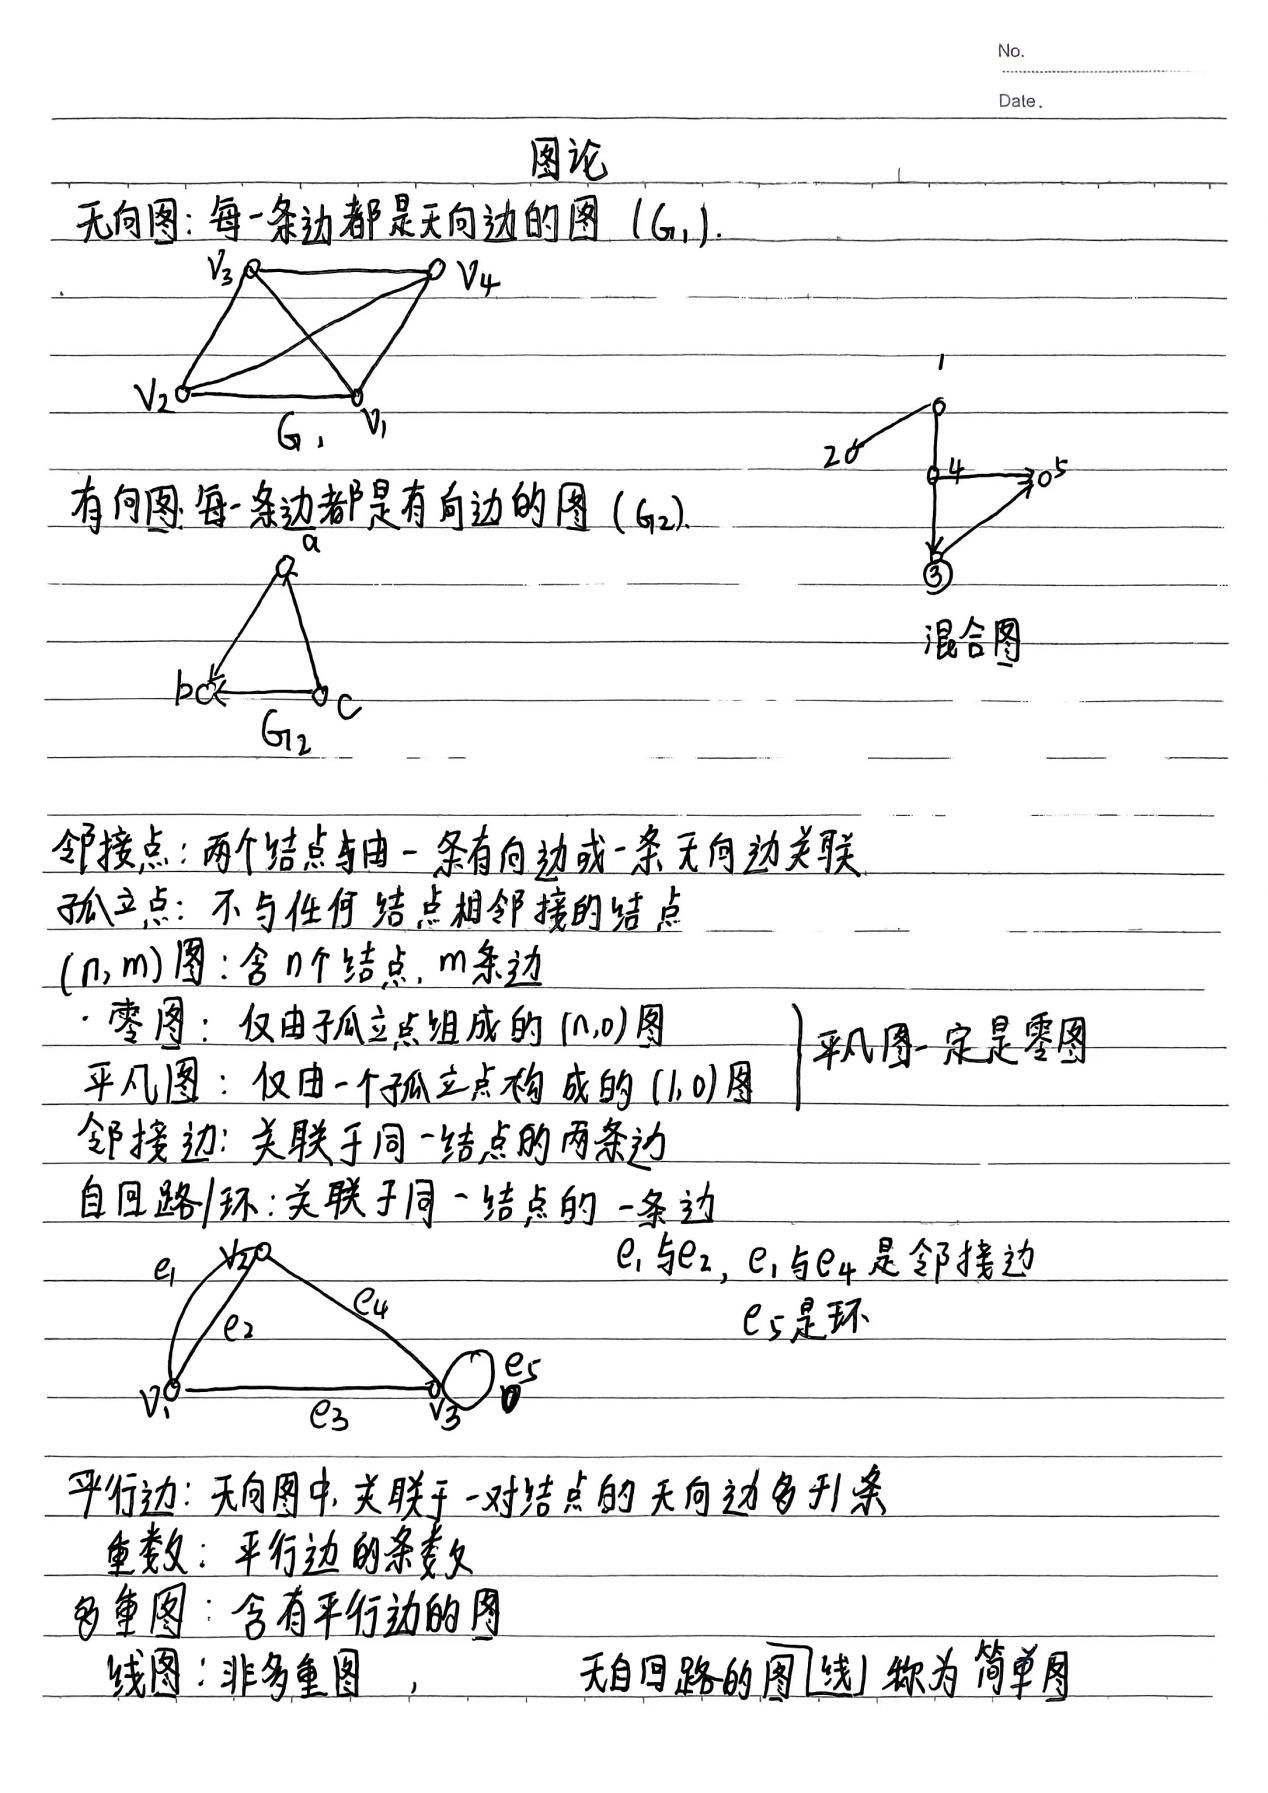 No.
Date.
图论
无向图：每一条边都是无向边的图 (G₁).
V₃
V₄
V₂
V₁
G₁
1
2
4
5
③
混合图
有向图：每一条边都是有向边的图 (G₂).
a
b
c
G₂
邻接点：两个结点与由一条有向边或一条无向边关联
孤立点：不与任何结点相邻接的结点
(n, m) 图：含 n个结点, m条边
· 零图：仅由孤立点组成的 (n,0) 图
平凡图一定是零图
平凡图：仅由一个孤立点构成的 (1,0) 图
邻接边：关联于同一结点的两条边
自回路/环：关联于同一结点的一条边
e₁与e₂, e₁与e₄是邻接边
e₅是环
e₁
V₂
e₂
e₄
e₅
V₁
e₃
V₃
平行边：无向图中, 关联于一对结点的无向边多于1条
重数：平行边的条数
多重图：含有平行边的图
线图：非多重图 , 无自回路的图[线] 称为 简单图